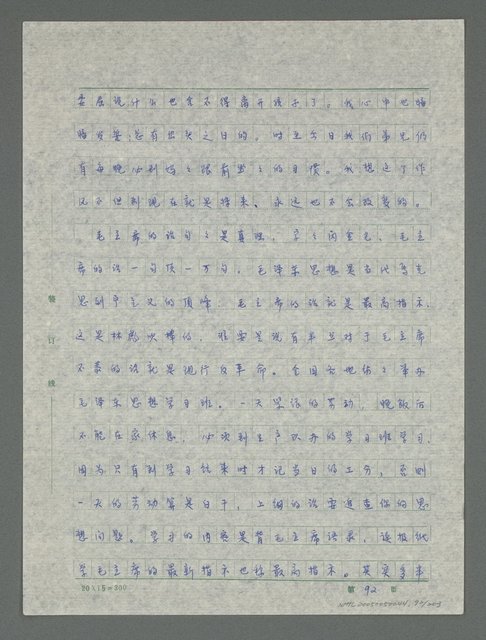 委屈说什么也舍不得离开孩子了。我心中也暗
暗发誓，总有出头之日的。时至今日我们弟兄仍
有每晚必到妈妈跟前坐坐的习惯。我想这个作
风不但到现在就是将来、永远也不会改变的。
毛主席的话句句是真理，字字闪金光、毛主
席的话一句顶一万句，毛泽东思想是当代马克
思列宁主义的顶峰，毛主席的话就是最高指示，
这是林彪吹捧的，谁要是说有半点对于毛主席
不恭的话就是现行反革命。全国各地纷纷举办
毛泽东思想学习班。一天紧张的劳动，晚饭后
不能在家休息，必须到生产队办的学习班学习，
因为只有到学习结束时才记当日的工分，否则
一天的劳动算是白干，上纲的话要追查你的思
想问题。学习的内容是背毛主席语录、读报纸
学毛主席的最新指示也称最高指示。其实多半
装
订
线
20×15=300
第 92 页